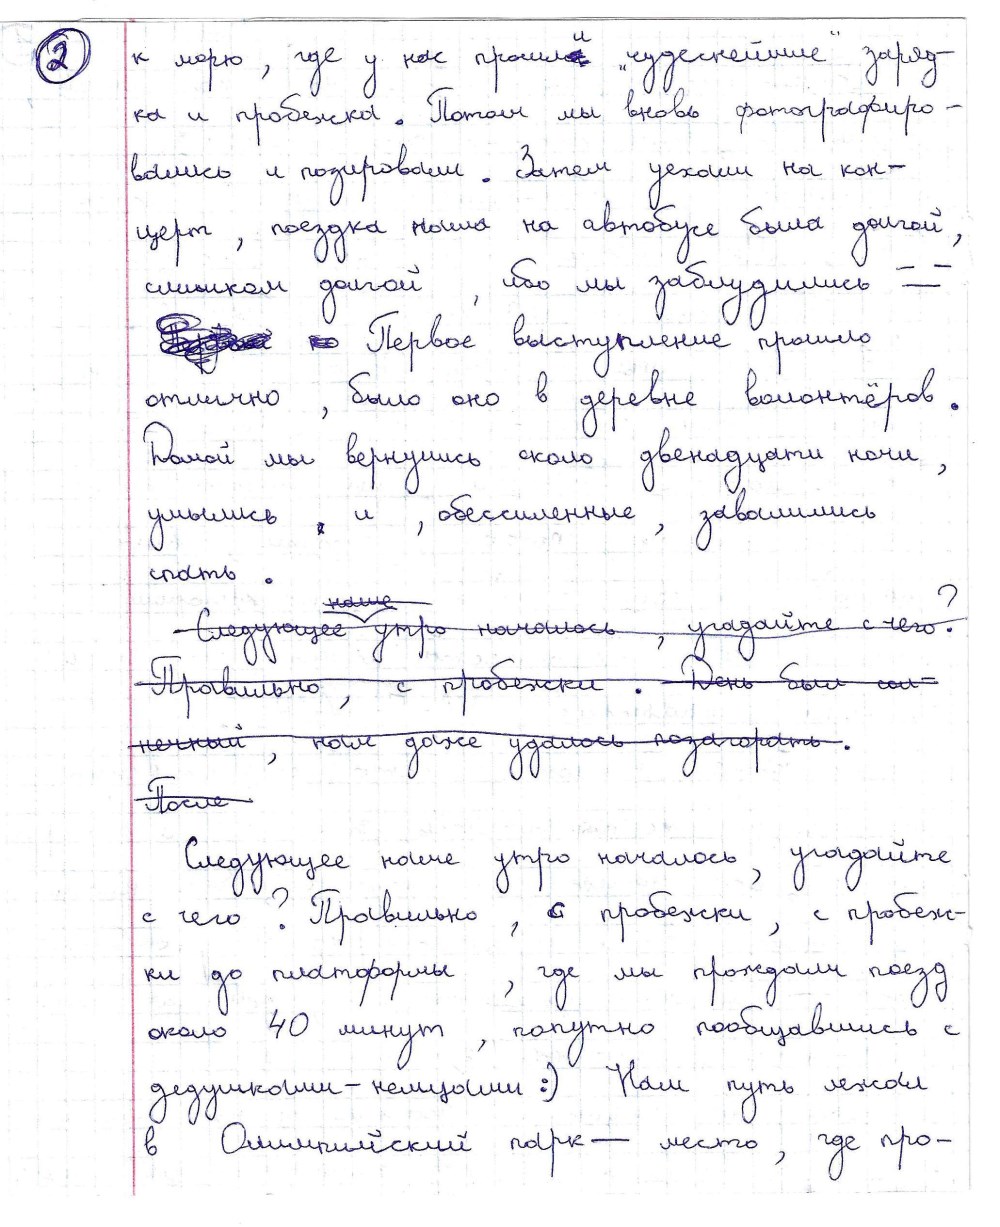 2
к морю, где у нас прошли „чудеснейшие" заряд-
ка и пробежка. Потом мы вновь фотографиро-
вались и позировали. Затем уехали на кон-
церт, поездка наша на автобусе была долгой,
слишком долгой, ибо мы заблудились =_=
Первое выступление прошло
отлично, было оно в деревне волонтёров.
Домой мы вернулись около двенадцати ночи,
умылись и, обессиленные, завалились
спать.
наше
Следующее утро началось, угадайте с чего?
Правильно, с пробежки. День был сол-
нечный, нам даже удалось позагорать.
После
Следующее наше утро началось, угадайте
с чего? Правильно, с пробежки, с пробеж-
ки до платформы, где мы прождали поезд
около 40 минут, попутно пообщавшись с
дедушками-немцами :) Нам путь лежал
в Олимпийский парк — место, где про-